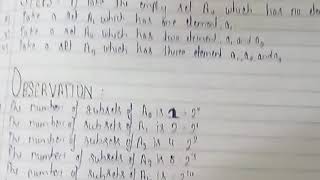 Take the empty set A0 which has no ele
Take a set A1 which has one element a1
Take a set A2 which has two element a1 and a2
Take a set A3 which has three element a1, a2 and a3
OBSERVATION :
The number of subsets of A0 is 1 = 2⁰
The number of subsets of A1 is 2 = 2¹
The number of subsets of A2 is 4 = 2²
The number of subsets of A3 is 8 = 2³
The number of subsets of